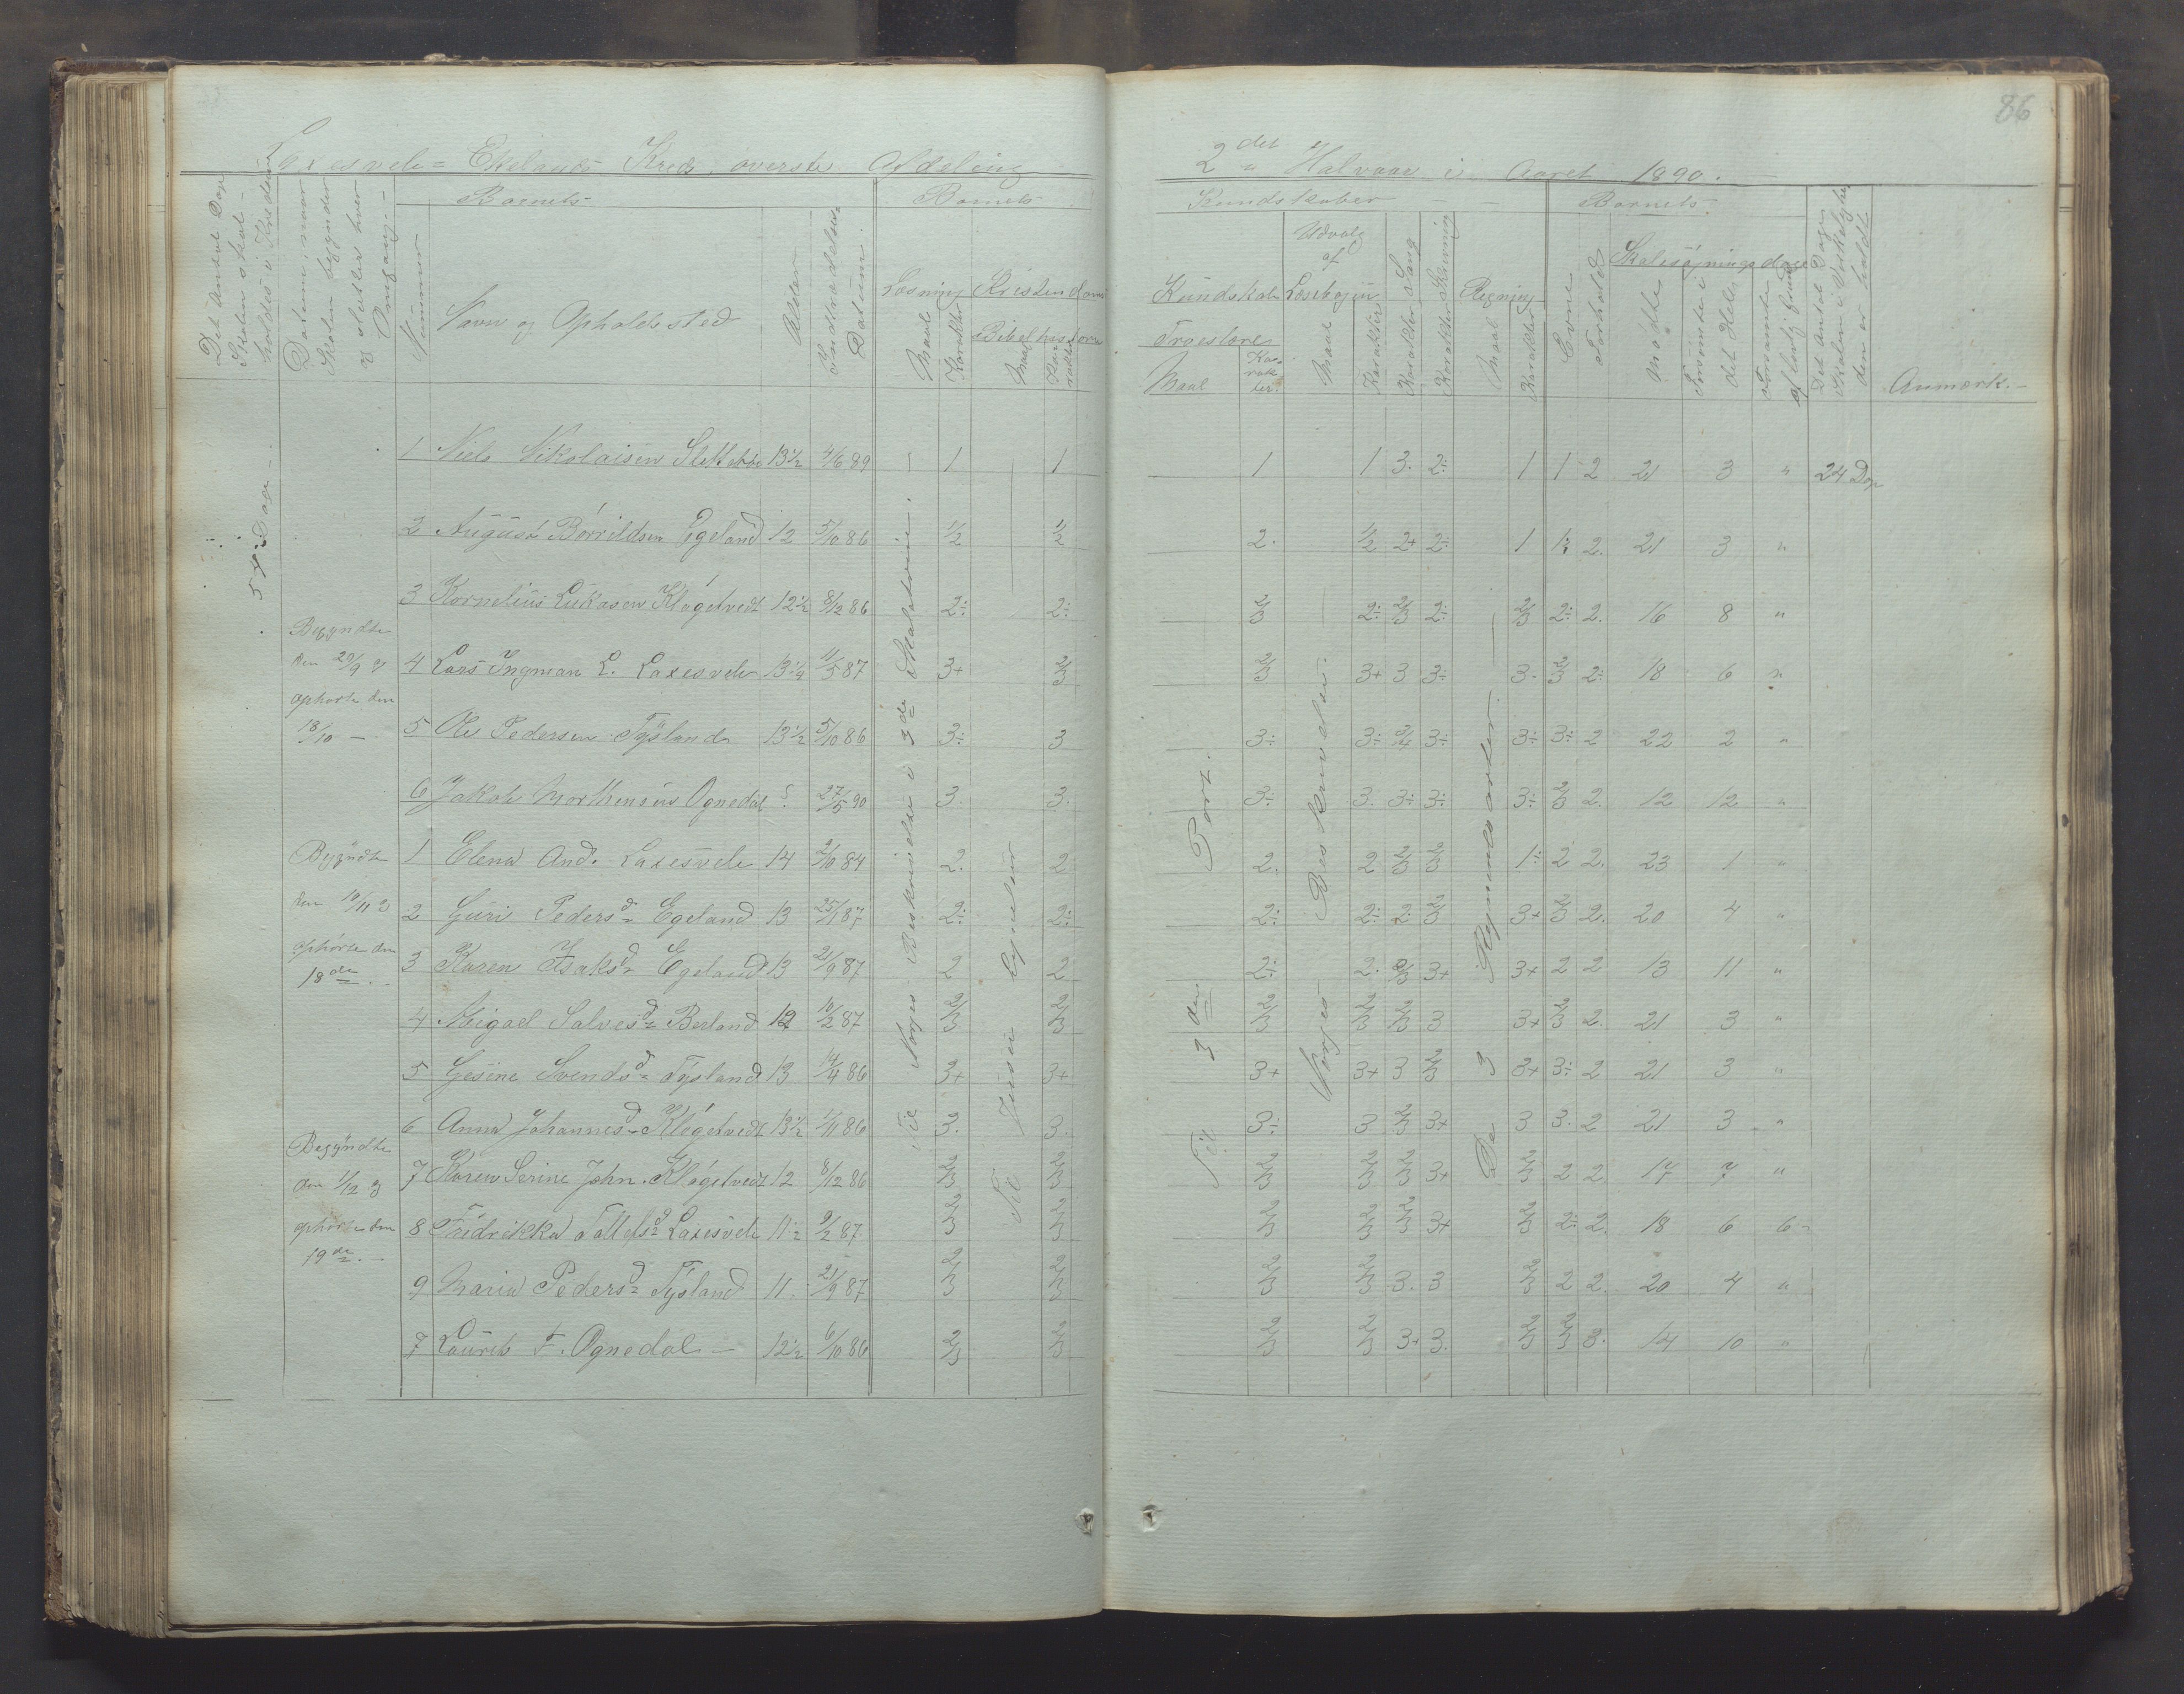 86
Laxesvele- Ekelands Kreds øverste Afdeling
2det Halvaar i Aaret 1890.
Det Antal Dage Skolen skal holdes i Kredsen
Datum, naar Skolen begynder og sluttes hver Omgang.-
Barnets
Nummer
Navn og Opholdssted
Alder
Indtrædelses Datum.
Barnets
Læsning
Maal
Karakter
Kristendoms
Bibelhistorie
Maal
Karakter
Kundskaber
Kundskab
Troeslære
Maal
Karakter.
Udvalg af Læsebogen
Maal
Karakter
Sang
Karakter
Skrivning
Karakter
Regning
Maal
Karakter
Barnets
Evne
Forhold
Skolesøgningsdage
Mødte
Forsømte i det Hele
Forsømte af lovlig Grund
Det Antal Dage Skolen i Virkeligheden er holdt
Anmærk.-
54 Dage
1 Niels Nikolaisen Slettebø 13½ 4/6 89 1 1 1 1 3. 2÷ 1 1 2 21 3 " 24 Dage
2 August Børrildsen Egeland 12 5/10 86 1/2 1/2 2. 1/2 2+ 2÷ 1 1÷ 2. 21 3 "
3 Kornelius Lukasen Kløgetvedt 12½ 8/12 86 2÷ 2÷ 2/3 2÷ 2/3 2÷ 2/3 2÷ 2. 16 8 "
Begyndte den 20/9 og ophørte den 18/10 -
4 Lars Ingman L. Laxesvele 13¼ 11/5 87 3+ 2/3 2/3 3+ 3 3÷ 3. 2/3 2÷ 18 6 "
5 Ole Pedersen Tysland 13½ 5/10 86 3÷ 3 3÷ 3÷ 3/4 3÷ 3÷ 3÷ 2 22 2 "
6 Jakob Morthensen Ognedal ? 27/5 90 3. 3. 3÷ 3. 3÷ 3÷ 3÷ 2/3 2. 12 12 "
Begyndte den 10/11 og ophørte den 18de -
1 Elena And. Laxesvele 14 2/10 84 2. 2 2. 2 2/3 2/3 1÷ 2 2. 23 1 "
2 Guri Pedersd Egeland 13 25/1 87 2÷ 2÷ 2÷ 2÷ 2. 2/3 3+ 2/3 2. 20 4 "
3 Karen Isaksd Egeland 13 21/9 87 2 2 2÷ 2. 2/3 3+ 3+ 2 2 13 11 "
4 Abigael Salvesd Berland 12 10/2 87 2/3 2/3 2/3 2/3 2/3 3 3+ 2/3 2. 21 3 "
5 Gesine Svendsd Tysland 13 14/4 86 3+ 3+ 3+ 3+ 3 2/3 3+ 3÷ 2 21 3 "
6 Anna Johannesd Kløgetvedt 13½ 1/11 86 3. 3. 3÷ 3 2/3 3+ 3 3. 2 21 3 "
Begyndte den 1/12 og ophørte den 19de -
7 Karen Serine John. Kløgetvedt 12 8/12 86 2/3 2/3 2/3 2/3 2/3 3+ 2/3 2 2 17 7 "
8 Fredrikka Tollefsd Laxesvele 11½ 9/2 87 2/3 2/3 2/3 2/3 2/3 3+ 2/3 2÷ 2. 18 6 6-
9 Maria Pedersd Tysland 11. 21/9 87 2/3 2/3 2/3 2/3 3. 3 2/3 2 2. 20 4 "
7 Laurits T. Ognedal - 12½ 6/10 86 2/3 2/3 2/3 2/3 3+ 3. 2/3 2/3 3. 14 10 "
Til Norges Beskrivelse i 3de Skoletrin.
Til Jesu Lignelser
Til 3die Part.
Norges Beskrivelse.
De 3 Regnemaader